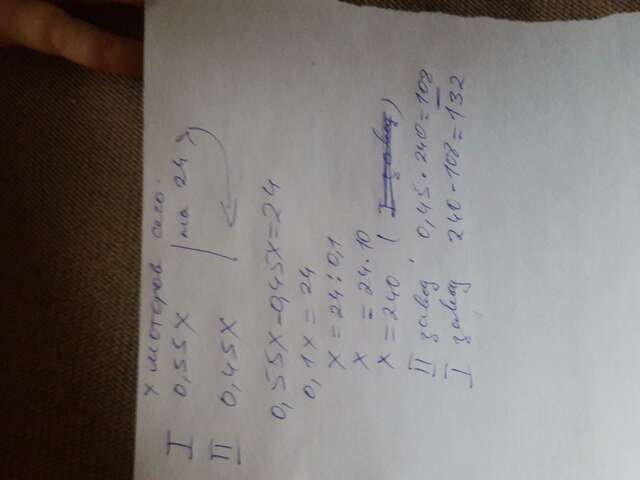 x моторов всего.
I 0,55x (на 24
II 0,45x
0,55x-0,45x=24
0,1x = 24
x = 24:0,1
x = 24·10
x = 240 (
II завод 0,45·240=108
I завод 240-108=132